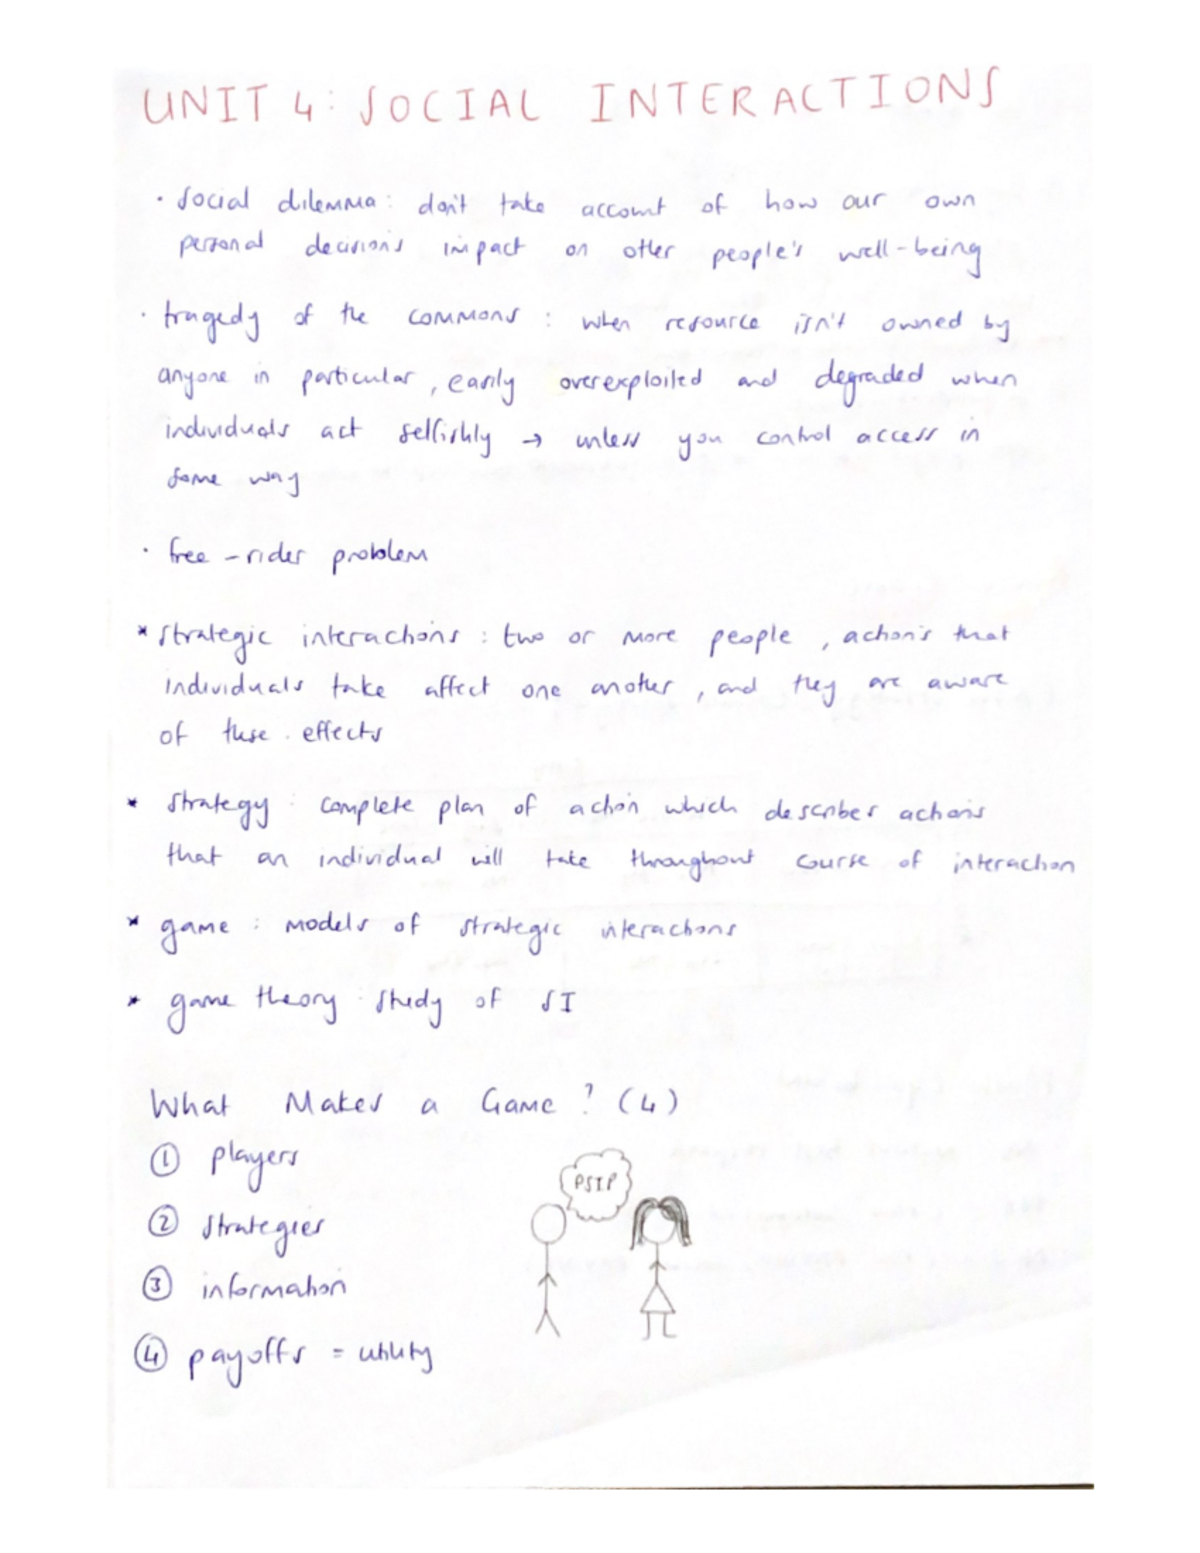 UNIT 4: SOCIAL INTERACTIONS
· social dilemma: don't take account of how our own
personal decisions impact on other people's well-being
· tragedy of the commons : when resource isn't owned by
anyone in particular, easily overexploited and degraded when
individuals act selfishly → unless you control access in
some way
· free-rider problem
* strategic interactions : two or more people, actions that
individuals take affect one another, and they are aware
of these effects
* strategy : complete plan of action which describes actions
that an individual will take throughout course of interaction
* game : models of strategic interactions
* game theory : study of SI
What Makes a Game? (4)
① players
PSIP
② strategies
③ information
④ payoffs = utility